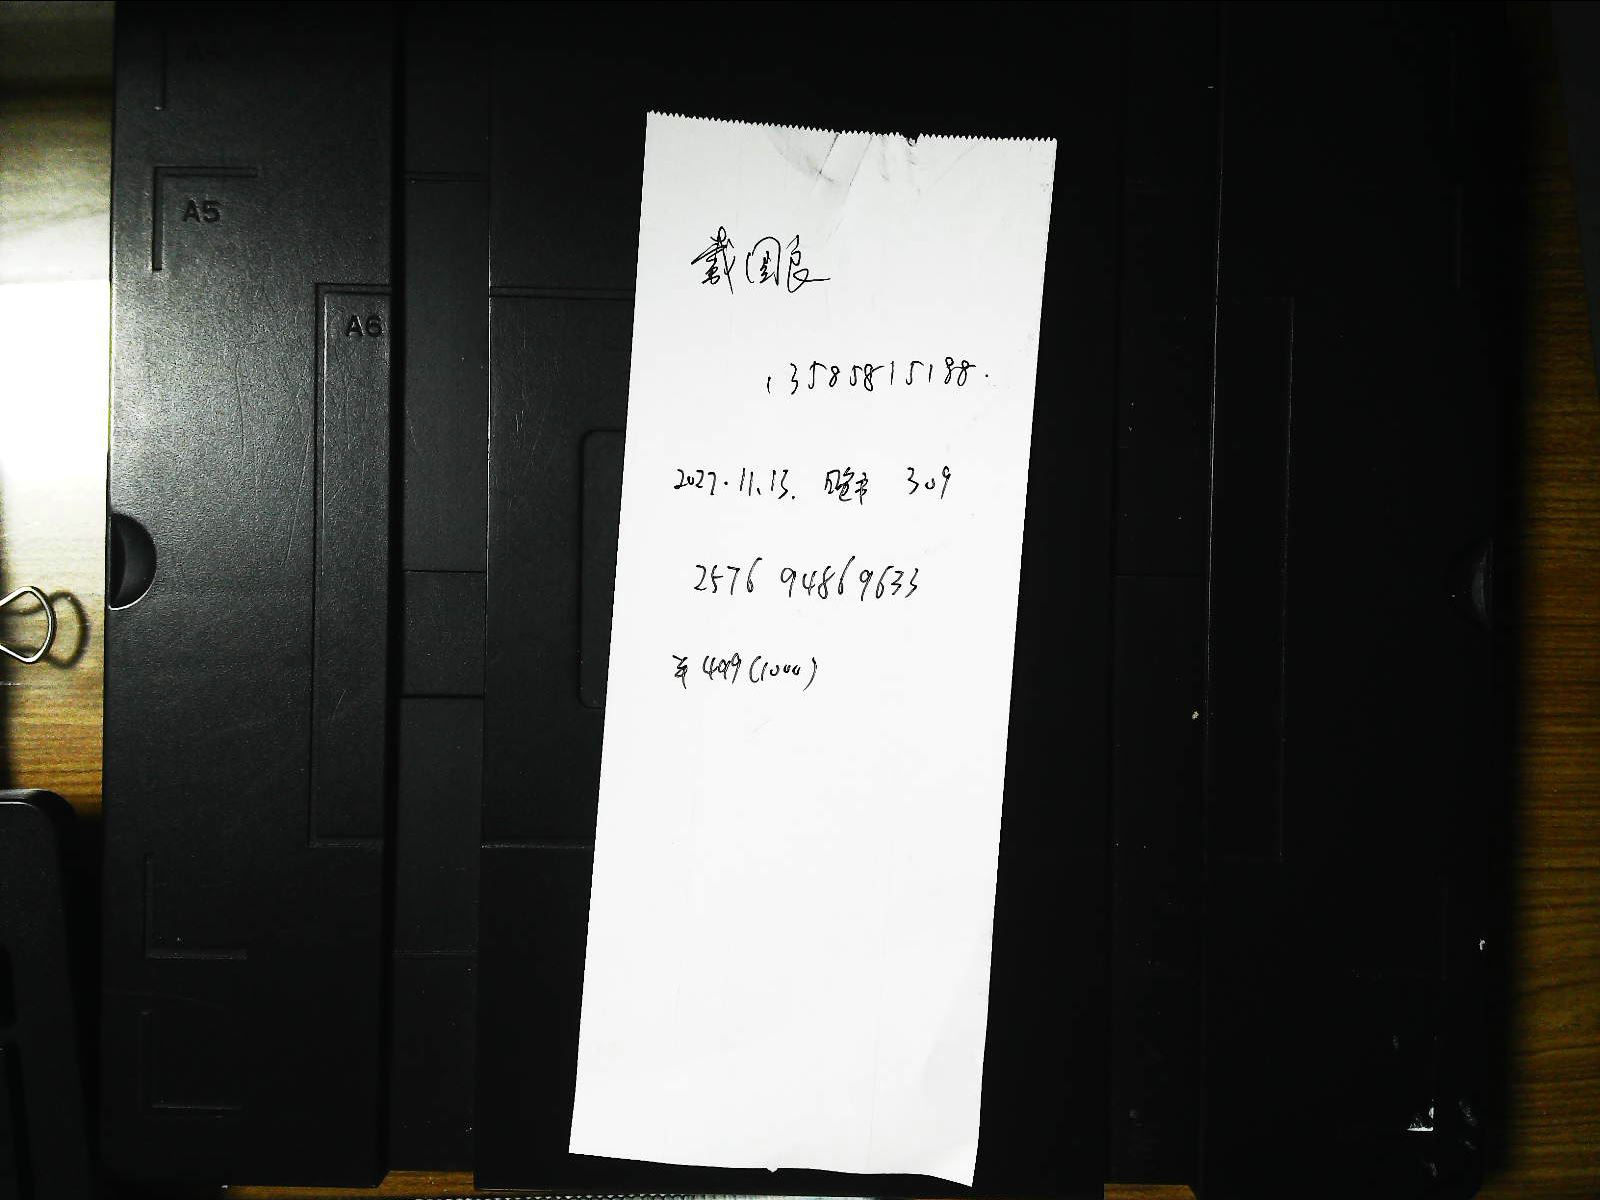 A4
A5
A6
戴国良
13585815188.
2027.11.13. 309
2576 94869633
¥499(1000)